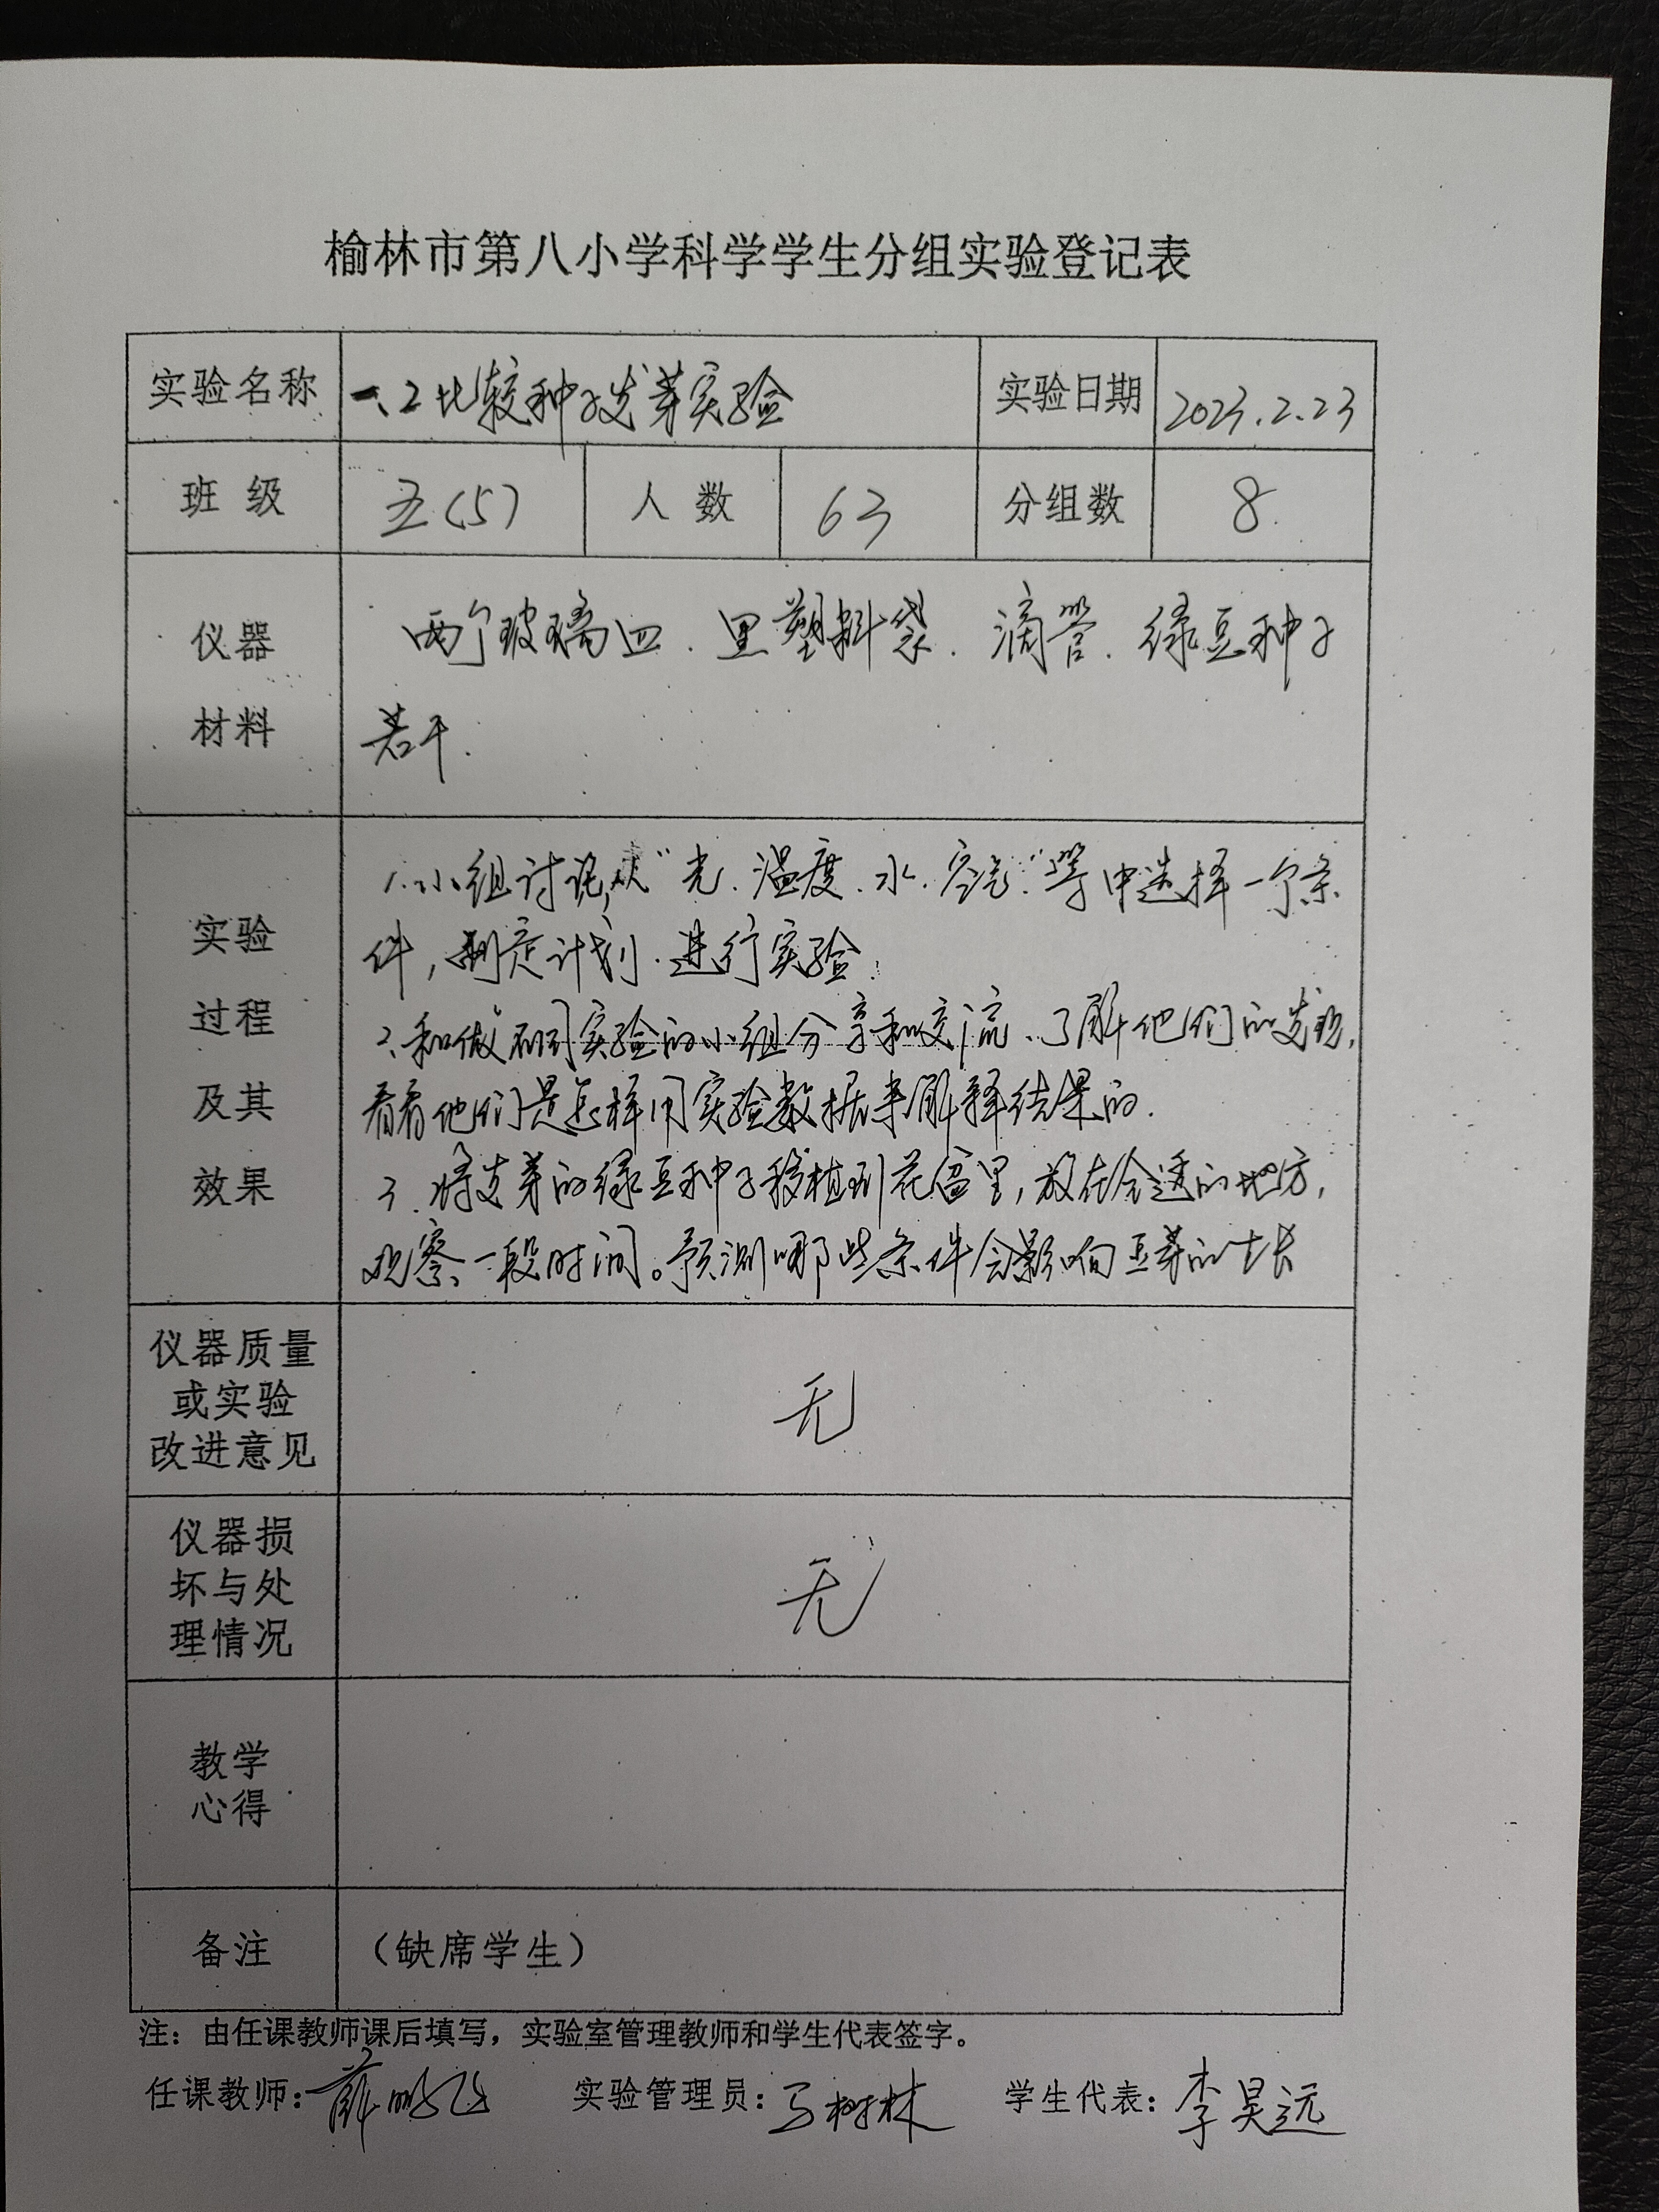 榆林市第八小学科学学生分组实验登记表
实验名称 一、2 比较种子发芽实验 实验日期 2023.2.23
班级 五(5) 人数 63 分组数 8.
仪器 材料
两个玻璃皿.黑塑料袋.滴管.绿豆种子
若干.
实验 过程 及其 效果
1.小组讨论,从“光.温度.水.空气”等中选择一个条
件,制定计划.进行实验.
2.和做不同实验的小组分享和交流、了解他们的发现,
看看他们是怎样用实验数据来解释结果的.
3.将发芽的绿豆种子移植到花盆里,放在合适的地方,
观察一段时间。预测哪些条件会影响豆芽的生长
仪器质量
或实验
改进意见
无
仪器损
坏与处
理情况
无
教学
心得
备注 (缺席学生)
注：由任课教师课后填写，实验室管理教师和学生代表签字。
任课教师：薛鹏飞 实验管理员：马树林 学生代表：李昊远